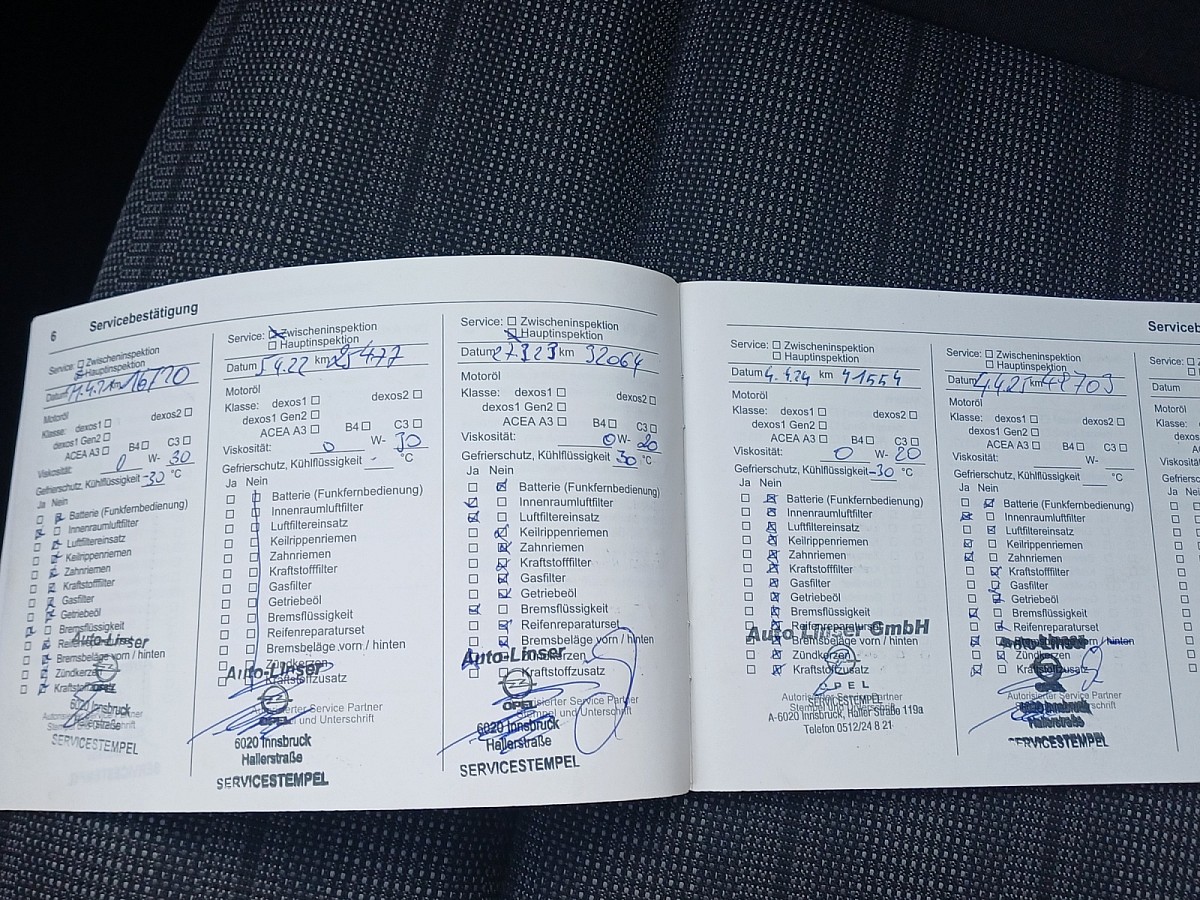 6 Servicebestätigung
Service: Zwischeninspektion
Hauptinspektion
Datum 16120
Motoröl
Klasse: dexos1 dexos2
dexos1 Gen2
ACEA A3 B4 C3
Viskosität: 0 W- 30
Gefrierschutz, Kühlflüssigkeit -30 °C
Ja Nein
Batterie (Funkfernbedienung)
Innenraumluftfilter
Luftfiltereinsatz
Keilrippenriemen
Zahnriemen
Kraftstofffilter
Gasfilter
Getriebeöl
Bremsflüssigkeit
Reifenreparaturset
Bremsbeläge vorn / hinten
Zündkerzen
Kraftstoffzusatz
Auto-Linser
6020 Innsbruck
Hallerstraße
SERVICESTEMPEL
Service: Zwischeninspektion
Hauptinspektion
Datum 5 4.22 km 25477
Motoröl
Klasse: dexos1 dexos2
dexos1 Gen2
ACEA A3 B4 C3
Viskosität: 0 W- 30
Gefrierschutz, Kühlflüssigkeit - °C
Ja Nein
Batterie (Funkfernbedienung)
Innenraumluftfilter
Luftfiltereinsatz
Keilrippenriemen
Zahnriemen
Kraftstofffilter
Gasfilter
Getriebeöl
Bremsflüssigkeit
Reifenreparaturset
Bremsbeläge vorn / hinten
Zündkerzen
Kraftstoffzusatz
Auto-Linser
OPEL
Autorisierter Service Partner
Stempel und Unterschrift
6020 Innsbruck
Hallerstraße
SERVICESTEMPEL
Service: Zwischeninspektion
Hauptinspektion
Datum 27 3 23 km 32064
Motoröl
Klasse: dexos1 dexos2
dexos1 Gen2
ACEA A3 B4 C3
Viskosität: 0 W- 20
Gefrierschutz, Kühlflüssigkeit 30 °C
Ja Nein
Batterie (Funkfernbedienung)
Innenraumluftfilter
Luftfiltereinsatz
Keilrippenriemen
Zahnriemen
Kraftstofffilter
Gasfilter
Getriebeöl
Bremsflüssigkeit
Reifenreparaturset
Bremsbeläge vorn / hinten
Zündkerzen
Kraftstoffzusatz
Auto-Linser
OPEL
Autorisierter Service Partner
Stempel und Unterschrift
6020 Innsbruck
Hallerstraße
SERVICESTEMPEL
Service: Zwischeninspektion
Hauptinspektion
Datum 4. 4.24 km 41554
Motoröl
Klasse: dexos1 dexos2
dexos1 Gen2
ACEA A3 B4 C3
Viskosität: 0 W- 20
Gefrierschutz, Kühlflüssigkeit -30 °C
Ja Nein
Batterie (Funkfernbedienung)
Innenraumluftfilter
Luftfiltereinsatz
Keilrippenriemen
Zahnriemen
Kraftstofffilter
Gasfilter
Getriebeöl
Bremsflüssigkeit
Reifenreparaturset
Bremsbeläge vorn / hinten
Zündkerzen
Kraftstoffzusatz
Auto Linser GmbH
OPEL
Autorisierter Service Partner
Stempel und Unterschrift
SERVICESTEMPEL
A-6020 Innsbruck, Haller Straße 119a
Telefon 0512/24 8 21
Service: Zwischeninspektion
Hauptinspektion
Datum 4.4.25 km 48709
Motoröl
Klasse: dexos1 dexos2
dexos1 Gen2
ACEA A3 B4 C3
Viskosität: W-
Gefrierschutz, Kühlflüssigkeit °C
Ja Nein
Batterie (Funkfernbedienung)
Innenraumluftfilter
Luftfiltereinsatz
Keilrippenriemen
Zahnriemen
Kraftstofffilter
Gasfilter
Getriebeöl
Bremsflüssigkeit
Reifenreparaturset
hinten
Zündkerzen
Kraftstoffzusatz
Autorisierter Service Partner
Hallerstraße
SERVICESTEMPEL
Serviceb
Service:
Datum
Motoröl
Klasse:
Viskosität
Ja